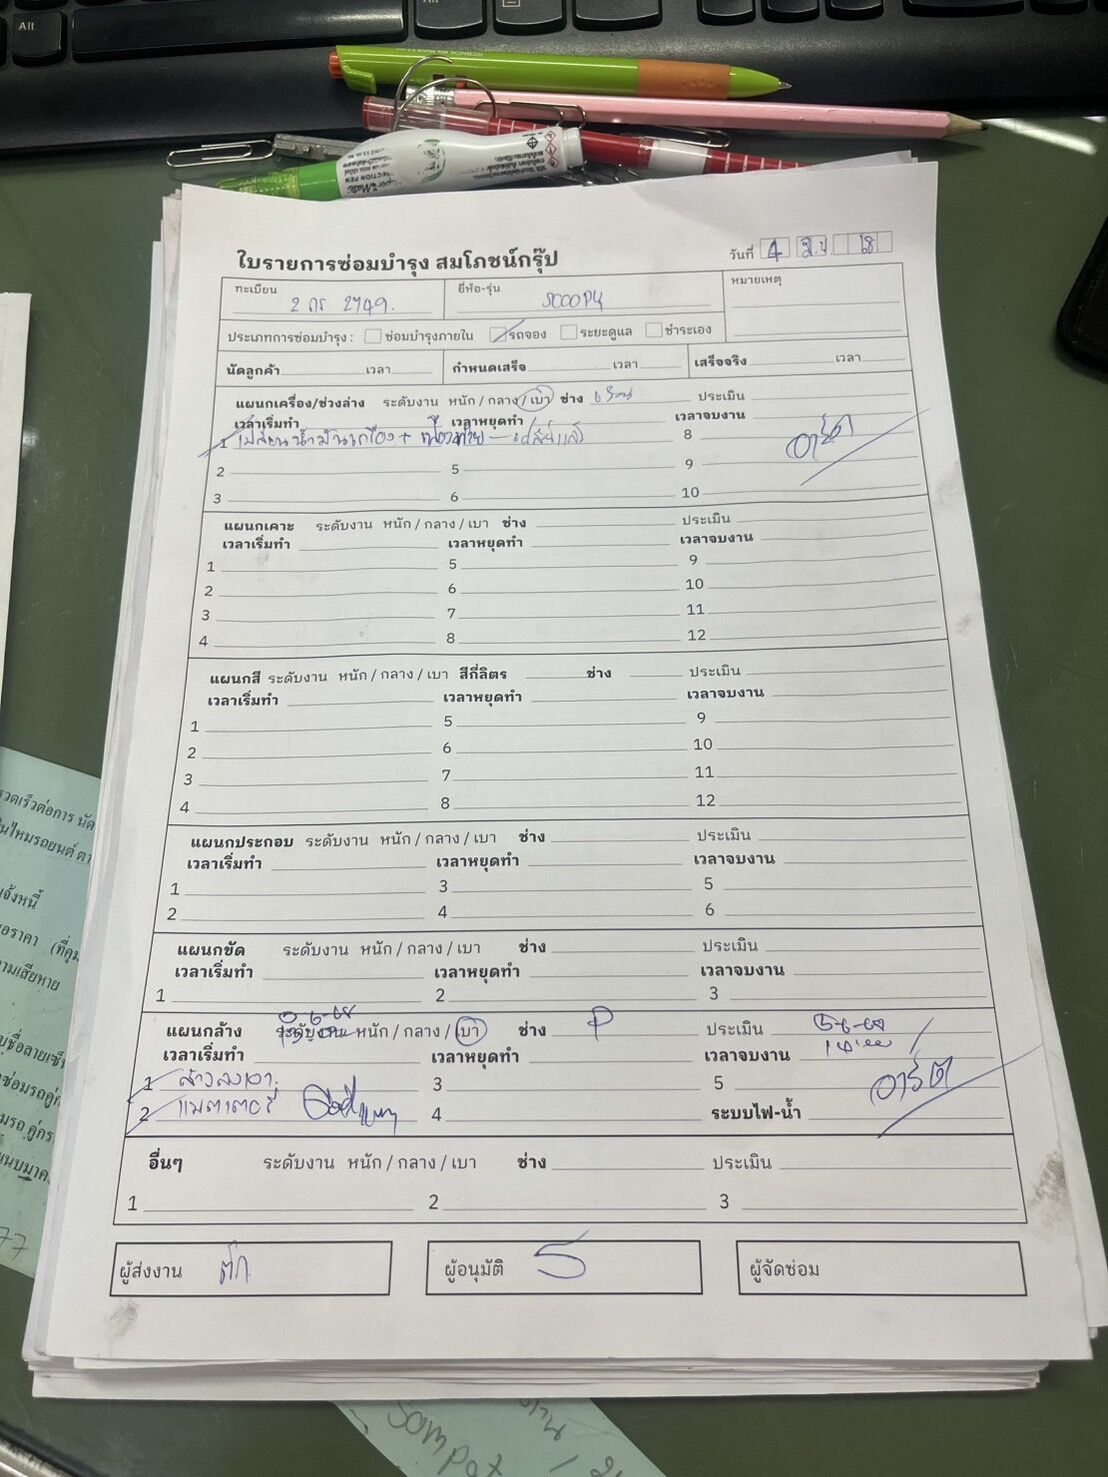 ใบรายการซ่อมบำรุง สมโภชน์กรุ๊ป
วันที่ 4
ทะเบียน 2 กร 2749.
ยี่ห้อ-รุ่น SCOOPY
หมายเหตุ
ประเภทการซ่อมบำรุง : ซ่อมบำรุงภายใน รถจอง ระยะดูแล ชำระเอง
นัดลูกค้า เวลา กำหนดเสร็จ เวลา เสร็จจริง เวลา
แผนกเครื่อง/ช่วงล่าง ระดับงาน หนัก / กลาง / เบา ช่าง ประเมิน
เวลาเริ่มทำ เวลาหยุดทำ เวลาจบงาน
1 เปลี่ยนน้ำมันเครื่อง + เฟืองท้าย 8
2 5 9
3 6 10
แผนกเคาะ ระดับงาน หนัก / กลาง / เบา ช่าง ประเมิน
เวลาเริ่มทำ เวลาหยุดทำ เวลาจบงาน
1 5 9
2 6 10
3 7 11
4 8 12
แผนกสี ระดับงาน หนัก / กลาง / เบา สีกี่ลิตร ช่าง ประเมิน
เวลาเริ่มทำ เวลาหยุดทำ เวลาจบงาน
1 5 9
2 6 10
3 7 11
4 8 12
แผนกประกอบ ระดับงาน หนัก / กลาง / เบา ช่าง ประเมิน
เวลาเริ่มทำ เวลาหยุดทำ เวลาจบงาน
1 3 5
2 4 6
แผนกขัด ระดับงาน หนัก / กลาง / เบา ช่าง ประเมิน
เวลาเริ่มทำ เวลาหยุดทำ เวลาจบงาน
1 2 3
แผนกล้าง ระดับงาน หนัก / กลาง / เบา ช่าง P ประเมิน
เวลาเริ่มทำ เวลาหยุดทำ เวลาจบงาน
1 3 5
2 แบตเตอรี่ 4 ระบบไฟ-น้ำ
อื่นๆ ระดับงาน หนัก / กลาง / เบา ช่าง ประเมิน
1 2 3
ผู้ส่งงาน
ผู้อนุมัติ
ผู้จัดซ่อม